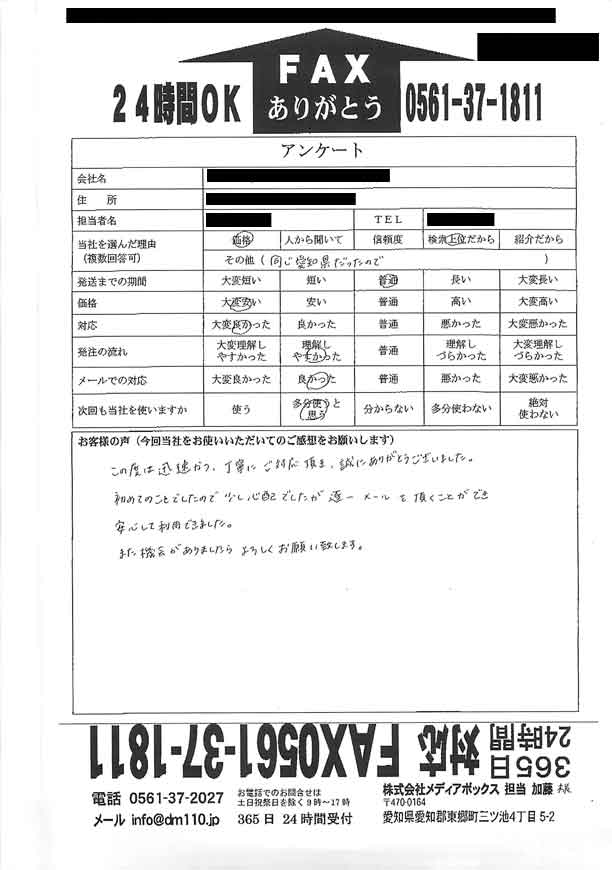 FAX
ありがとう
24時間OK
0561-37-1811
アンケート
会社名
住 所
担当者名 TEL
当社を選んだ理由 (複数回答可) 価格 人から聞いて 信頼度 検索上位だから 紹介だから
その他 ( 同じ愛知県だったので )
発送までの期間 大変短い 短い 普通 長い 大変長い
価格 大変安い 安い 普通 高い 大変高い
対応 大変良かった 良かった 普通 悪かった 大変悪かった
発注の流れ 大変理解しやすかった 理解しやすかった 普通 理解しづらかった 大変理解しづらかった
メールでの対応 大変良かった 良かった 普通 悪かった 大変悪かった
次回も当社を使いますか 使う 多分使うと思う 分からない 多分使わない 絶対使わない
お客様の声(今回当社をお使いいただいてのご感想をお願いします)
この度は迅速かつ、丁寧にご対応頂き、誠にありがとうございました。
初めてのことでしたので少し心配でしたが逐一メールを頂くことができ
安心して利用できました。
また機会がありましたらよろしくお願い致します。
365日 24時間 対応 FAX0561-37-1811
電話 0561-37-2027
お電話でのお問合せは
土日祝祭日を除く9時~17時
株式会社メディアボックス 担当 加藤
〒470-0164
メール info@dm110.jp 365日 24時間受付 愛知県愛知郡東郷町三ツ池4丁目5-2